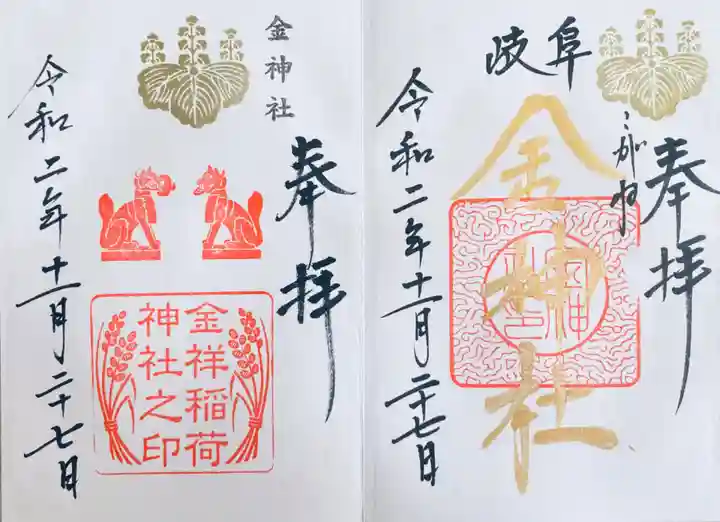 岐阜
奉拝
こがね
金神社
令和二年十一月二十七日
金神社
奉拝
金祥稲荷
神社之印
令和二年十一月二十七日